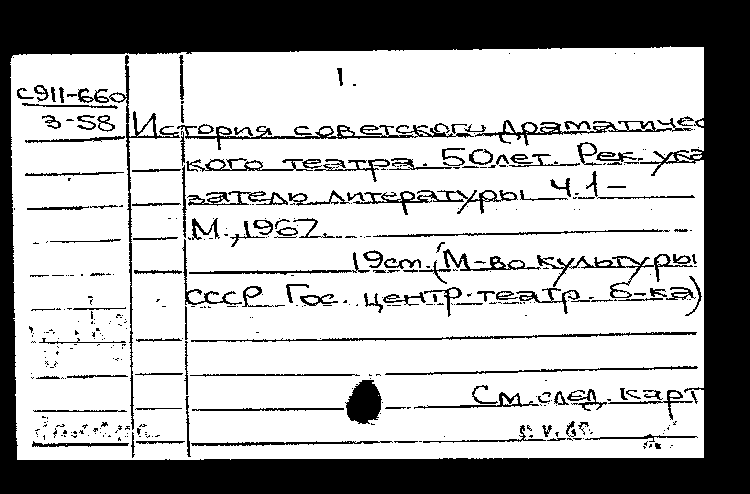 1.
с911-660
3-58
История советского драматичес
кого театра. 50лет. Рек ука
затель литературы Ч.1-
М.,1967.
19ст.(М-во культуры
СССР Гос. центр.театр. б-ка)
См.след.карт